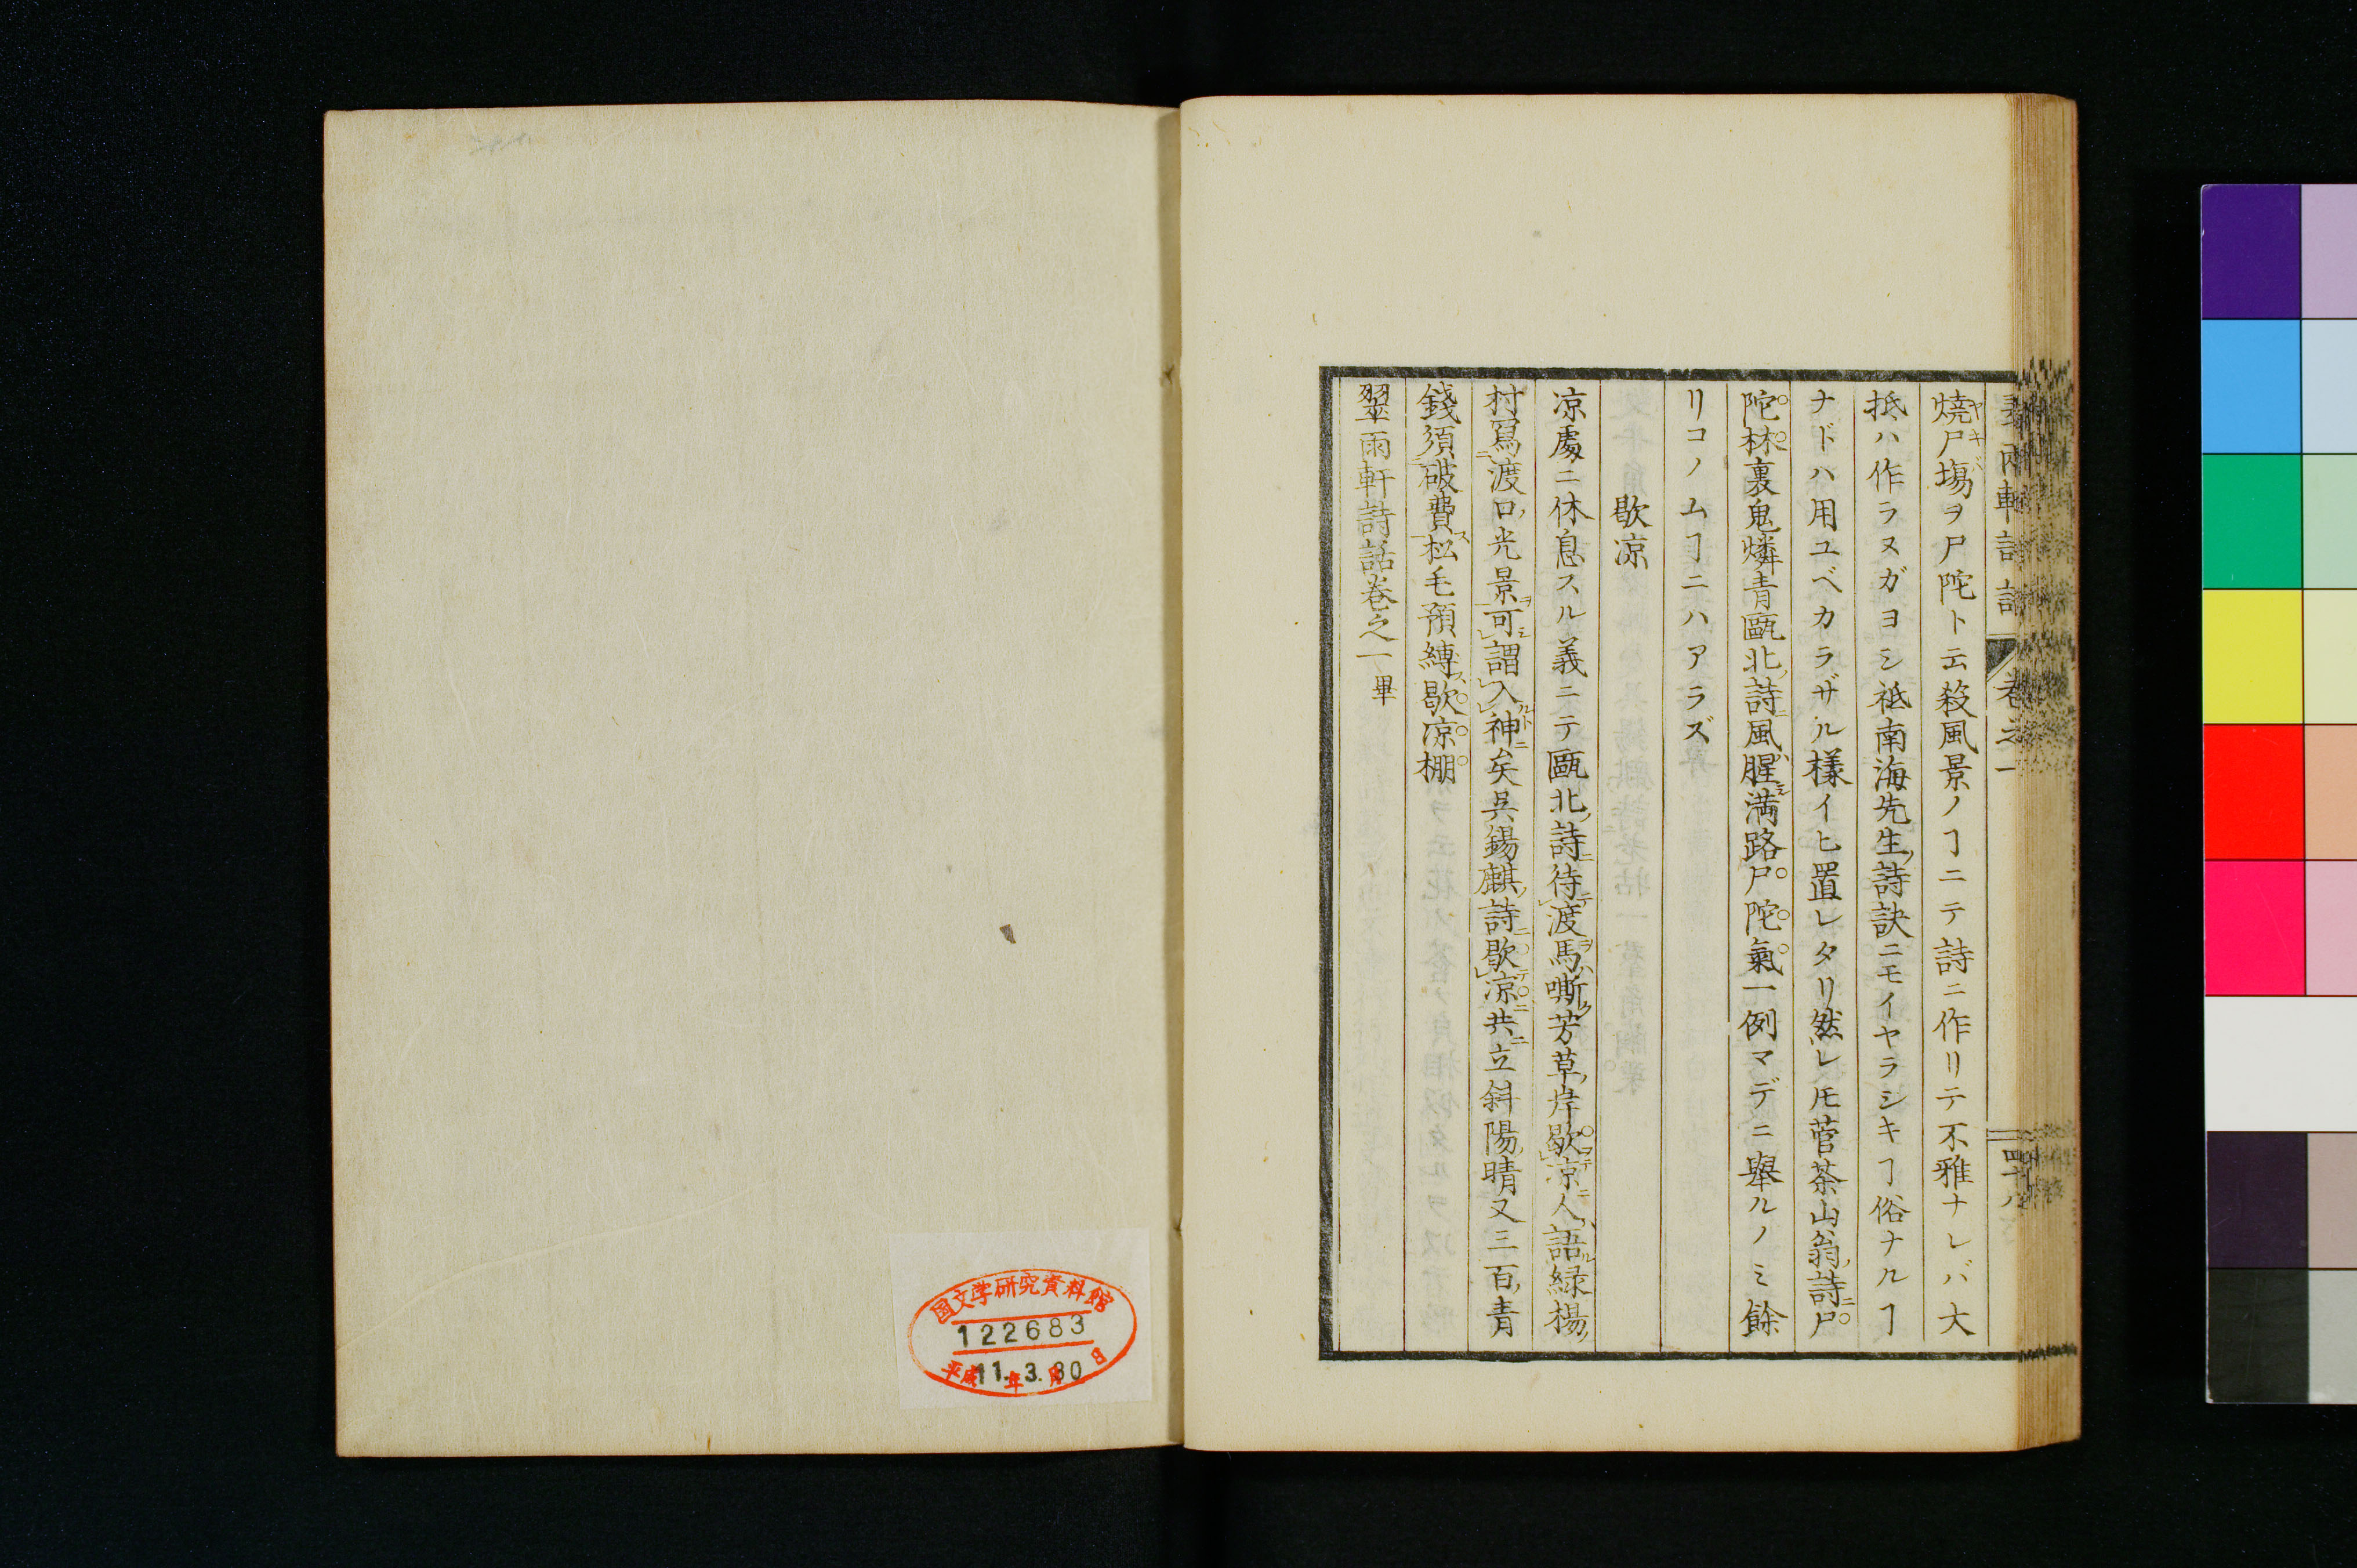 翠雨軒詩話 卷之一 四十八
燒尸場ヲ尸陀ト云殺風景ノヿニテ詩ニ作リテ不雅ナレバ大
抵ハ作ラヌガヨシ祗南海先生詩訣ニモイヤラシキヿ俗ナルヿ
ナドハ用ユベカラザル樣イヒ置レタリ然レ𪜈菅茶山翁詩尸
陀林裏鬼燐青甌北詩風腥満路尸陀氣一例マデニ舉ルノミ餘
リコノムヿニハアラズ
歇凉
凉處ニ休息スル義ニテ甌北詩待渡馬嘶芳草岸歇凉人語緑楊
村寫渡口光景可謂入神矣呉錫麒詩歇凉共立斜陽晴又三百青
錢須破費松毛預縛歇凉棚
翠雨軒詩話卷之一畢
国文学研究資料館
122683
平成11年3月30日